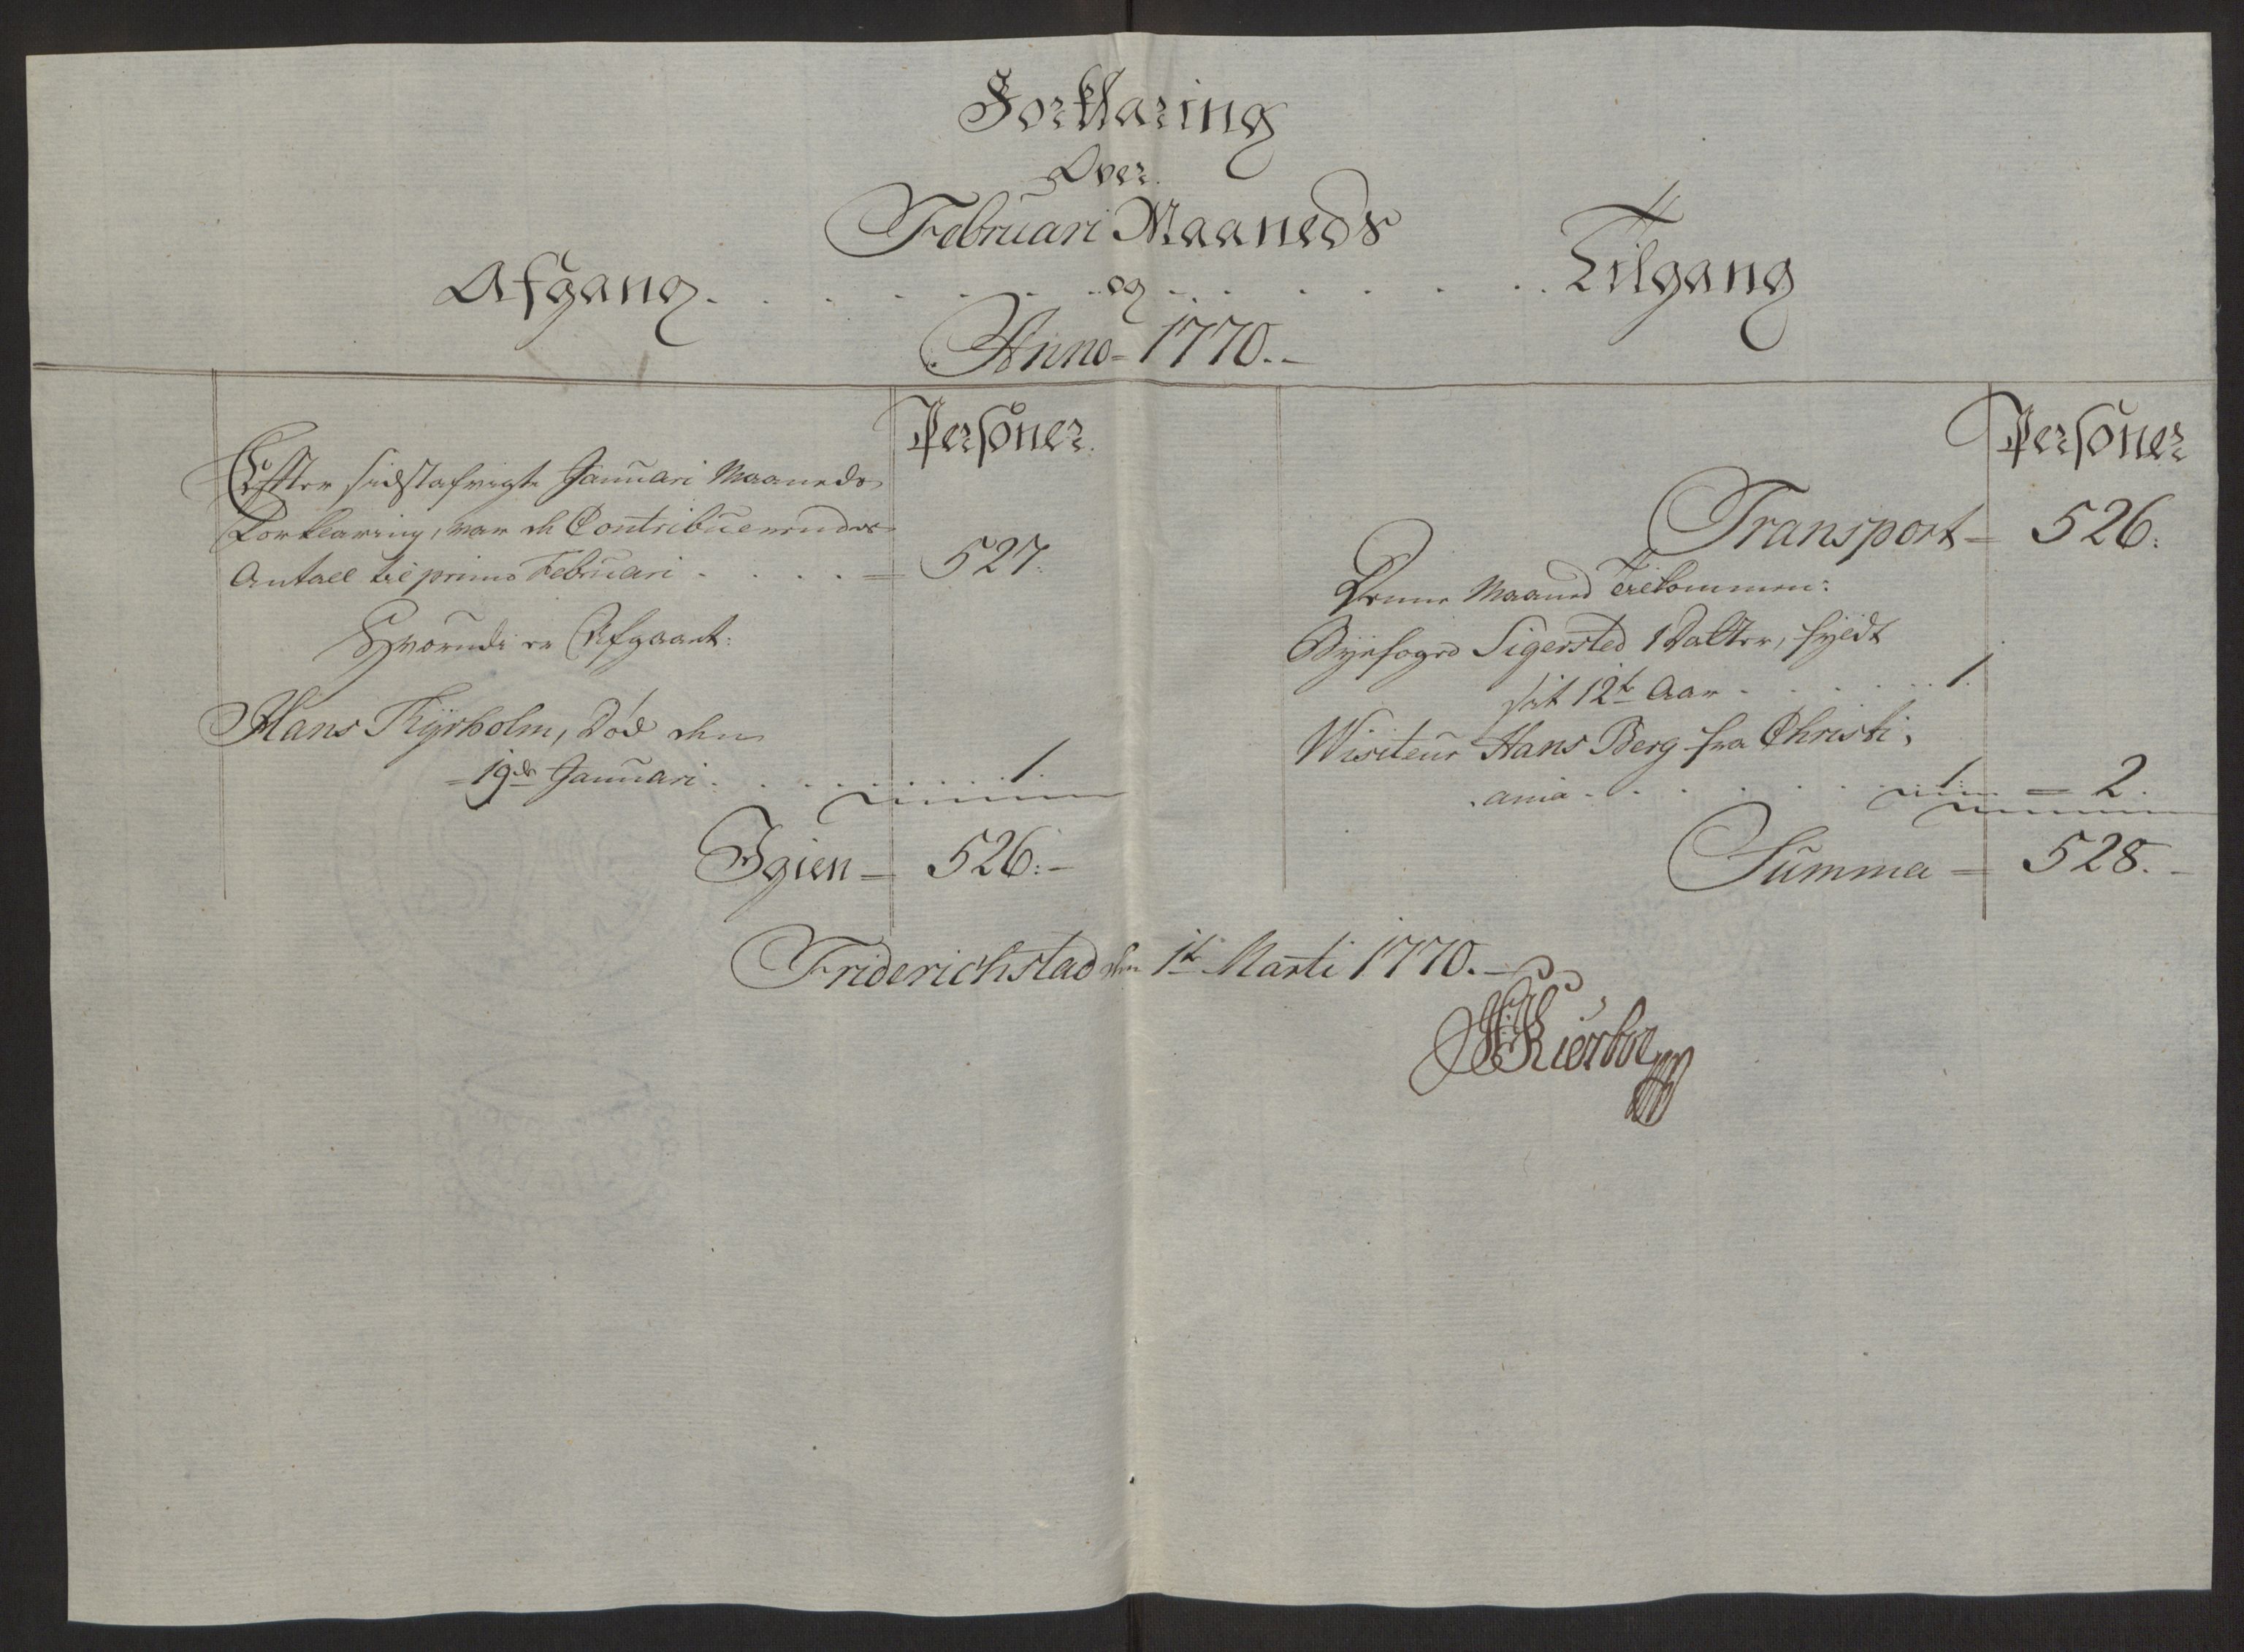 Forklaring
Over
Februari Maaneds
Afgang . . . . . . og . . . . . . Tilgang
Anno 1770.
Personer.
Efter sidstafvigte Januari Maaneds
Forklaring, var de Contribuerendes
Antall til primo Februari . . . . = 527.
Hvorudi er Afgaaet:
Hans Thyrholm, Død den
19de Januari . . . . . 1.
Igien = 526.
Personer
Transport = 526.
Denne Maaned Tilkommen:
Byefoged Sigersted 1 Datter, fyldt
sit 12te Aar . . . . . 1.
Visiteur Hans Berg fra Christi,
ania . . . . . 1. = 2.
Summa = 528.
Friderichstad den 1te Marti 1770.